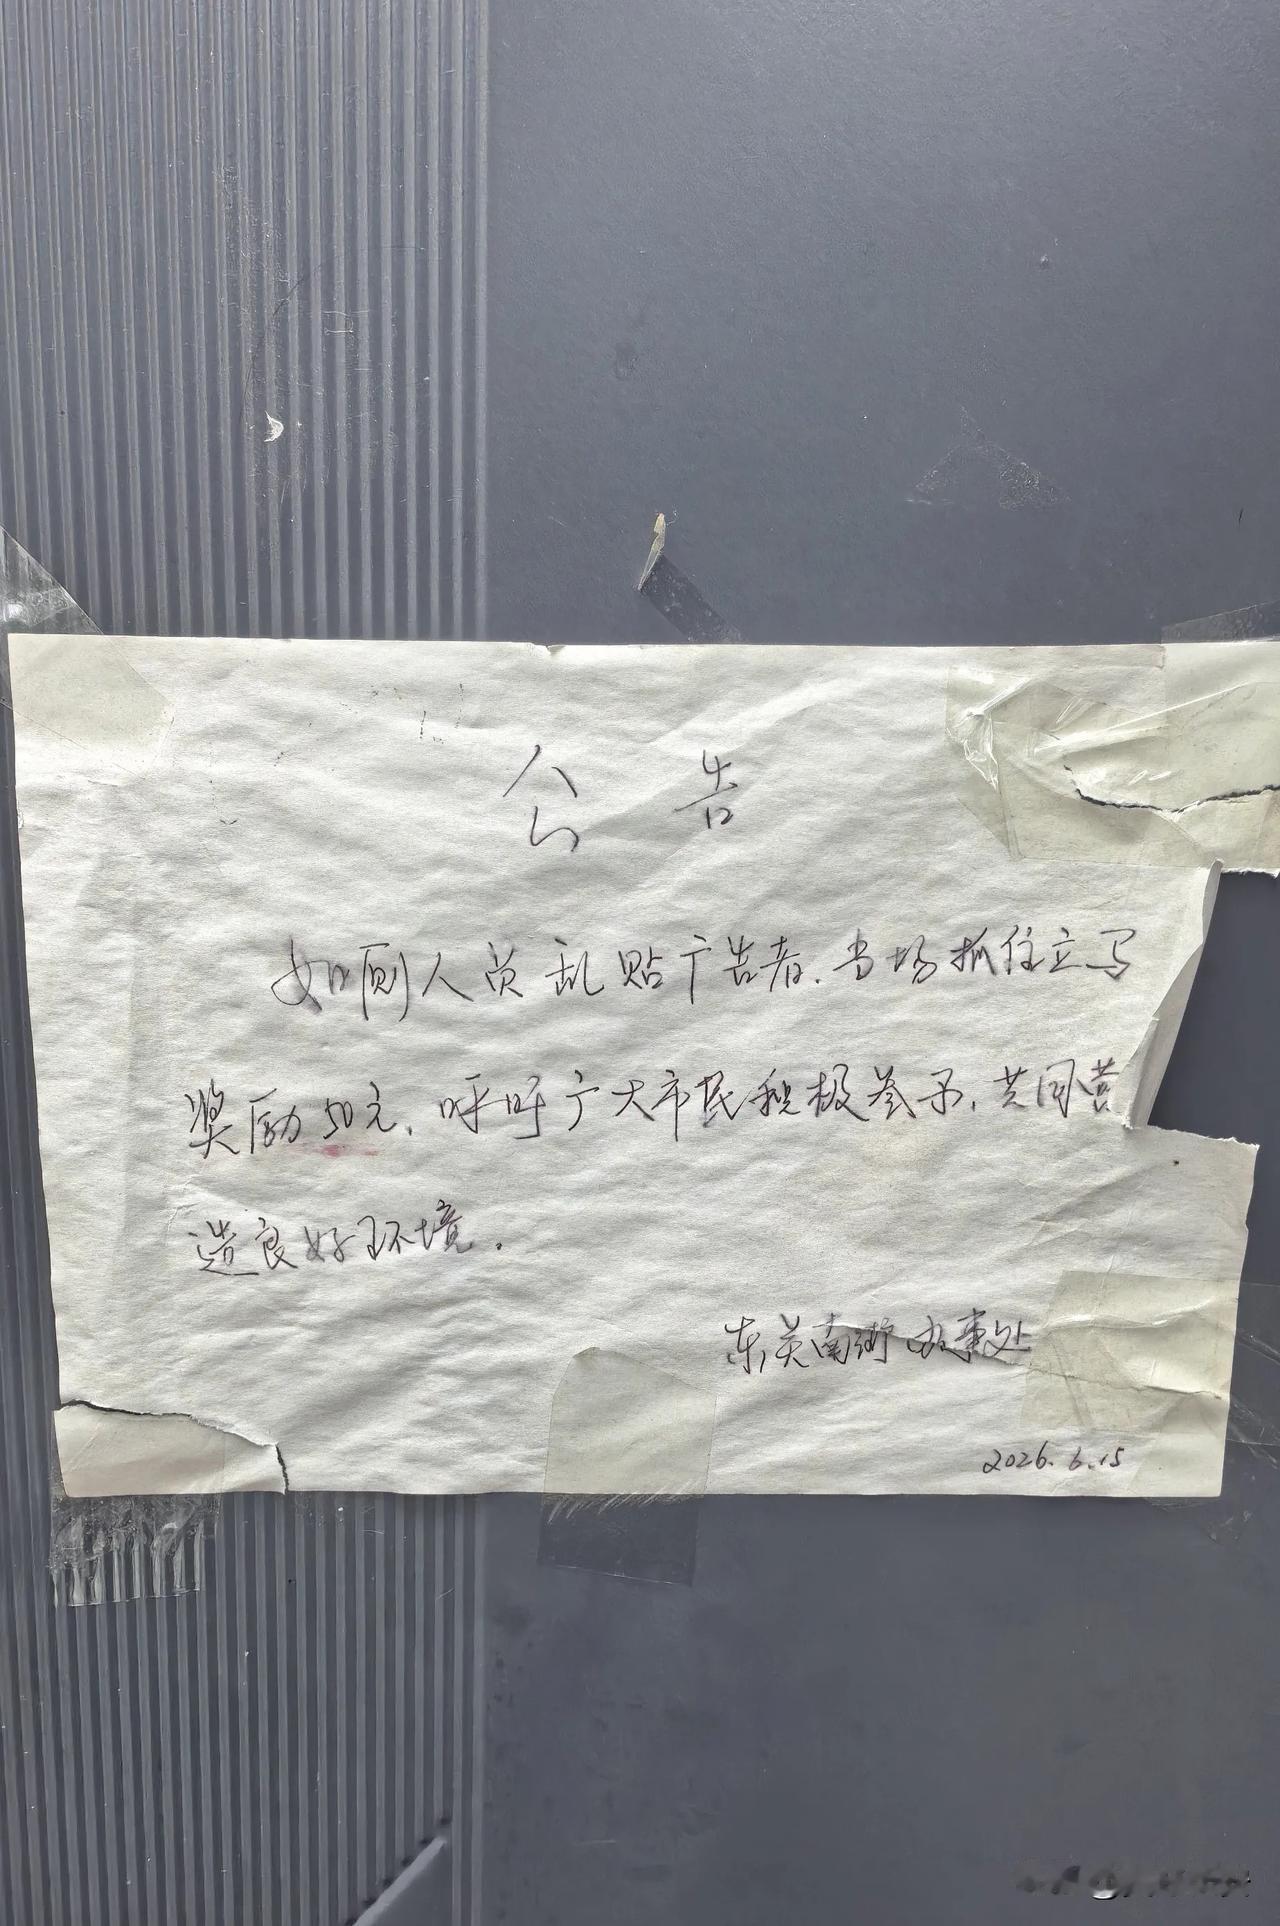 公 告
如厕人员乱贴广告者.当场抓住立马
奖励50元.呼吁广大市民积极参予.共同营
造良好环境.
东关南街办事处
2026.6.15